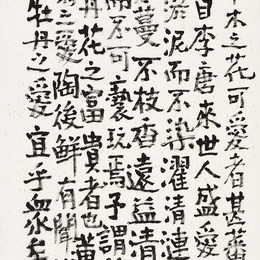 木之花可愛者甚蕃
自李唐來世人盛愛
淤泥而不染濯清漣
蔓不枝香遠益清
而不可褻玩焉予謂
丹花之富貴者也
之愛陶後鮮有聞
牡丹之愛宜乎眾矣